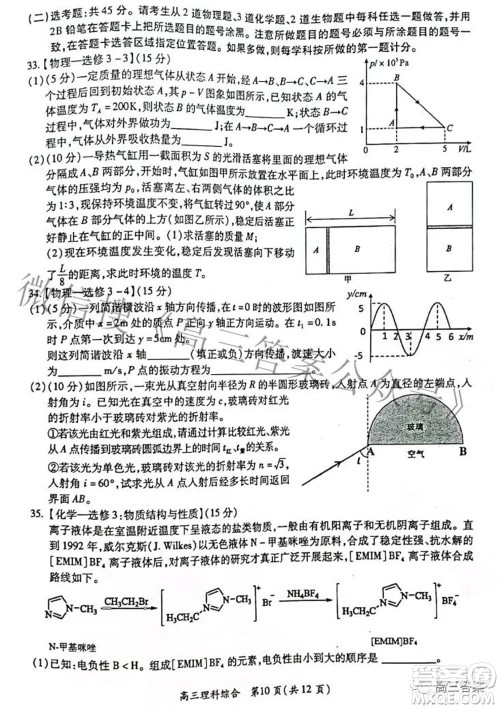 (二)选考题:共45分。请考生从2道物理题、3道化学题、2道生物题中每科任选一题做答,并用
2B铅笔在答题卡上把所选题目的题号涂黑。注意所做题目的题号必须与所涂题目的题号一
致,在答题卡选答区域指定位置答题。如果多做,则每学科按所做的第一题计分。
33.【物理—选修3-3】(15分)
(1)(5分)一定质量的理想气体从状态A开始,经A→B、B→C、C→A三
个过程后回到初始状态A,其p-V图象如图所示,已知状态A的气
体温度为T_A=200K,则气体在状态B的温度为______K;在A→B
过程中,气体对外界做功为______J;在A→B→C→A一个循环过
程中,气体从外界吸收热量为______J。
p/×10⁵Pa
4
1
0
2
5
V/L
A
B
C
(2)(10分)一导热气缸用一截面积为S的光滑活塞将里面的理想气体
分隔成A、B两部分,开始时,气缸水平放置如图甲所示,此时环境温度为T₀,A、B两部分
气体的压强均为p₀,活塞离左、右两边的距离之比
为1:3,现保持环境温度不变,将气缸旋转90°,使A
部分在上,B部分在下(如图乙所示),稳定后活塞正
好静止在气缸的正中间。(Ⅰ)求活塞的质量;
(Ⅱ)现在环境温度发生变化,稳定后活塞向下移动
了L/8的距离,求此时环境的温度T。
L
A
B
甲
A
B
乙
34.【物理—选修3-4】(15分)
(1)(5分)一列简谐横波沿x轴方向传播,在t=0时刻的波形如图
所示,介质中x=2m处的质点P沿y轴正方向运动,在t₁=0.1s
时P点第一次到达y=5cm处。
则这列简谐波沿x轴______(填正或负)方向传播,波速大小为
______m/s,P点的振动方程为______cm。
y/cm
x/m
0
1
2
3
4
5
(2)(10分)如图所示,一束光从真空射向半径为R的半圆形玻璃砖,入射点A为直径的左端点,
入射角为i。已知光在真空中的速度为c,玻璃砖对红光的折射率小
于玻璃砖对紫光的折射率。
①若该光由红光和紫光组成,请通过计算比较红光、紫光
从A点传播到玻璃砖圆弧边界上的时间t红、t紫的大小关系;
②若该光为单色光,玻璃砖对该单色光的折射率为√3,
入射角i=60°,试求该光在玻璃砖内传播的时间。
玻璃
A
B
空气
i
35.【化学—选修3:物质结构与性质】(15分)
离子液体是在室温附近温度下呈液态的盐类物质,一般由有机阳离子和无机阴离子组成。直
到1992年,威尔克斯(J. Wilkes)以N-甲基咪唑为原料,合成了稳定性更强、抗水解的
[EMIM]BF₄离子液体后,对离子液体的研究才真正广泛开展开来。[EMIM]BF₄离子液体合成
路线如下。
CH₃
CH₃CH₂Br
CH₃
CH₃CH₂
+
Br⁻
NH₄BF₄
CH₃
CH₃CH₂
+
BF₄⁻
N-甲基咪唑
[EMIM]BF₄
(1)已知:电负性B<H。组成[EMIM]BF₄的元素中,电负性最大的元素是______。
高三理科综合 第10页(共12页)
微信搜《高三答案公众号》
高三答案